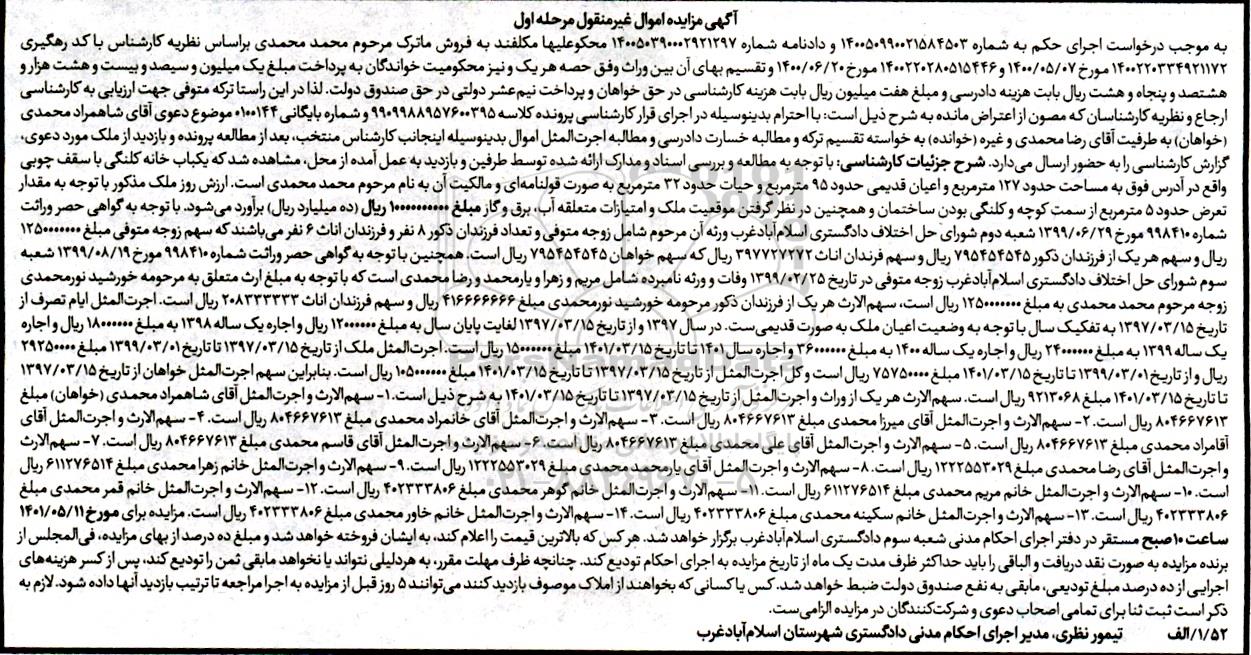 آگهی مزایده اموال غیرمنقول مرحله اول
به موجب درخواست اجرای حکم به شماره ۱۴۰۰۵۰۹۹۰۰۲۱۵۸۴۵۰۳ و دادنامه شماره ۱۴۰۰۵۰۳۹۰۰۰۲۹۲۱۲۹۷ محکوعلیها مکلفند به فروش ماترک مرحوم محمد محمدی براساس نظریه کارشناس با کد رهگیری
۱۴۰۰۲۲۰۳۳۴۹۲۱۱۷۲ مورخ ۱۴۰۰/۰۵/۰۷ و ۱۴۰۰۲۲۰۲۸۰۵۱۵۴۴۶ مورخ ۱۴۰۰/۰۶/۲۰ و تقسیم بهای آن بین وراث وفق حصه هر یک و نیز محکومیت خواندگان به پرداخت مبلغ یک میلیون و سیصد و بیست و هشت هزار و
هشتصد و پنجاه و هشت ریال بابت هزینه دادرسی و مبلغ هفت میلیون ریال بابت هزینه کارشناسی در حق خواهان و پرداخت نیم‌عشر دولتی در حق صندوق دولت. لذا در این راستا ترکه متوفی جهت ارزیابی به کارشناسی
ارجاع و نظریه کارشناسان که مصون از اعتراض مانده به شرح ذیل است: با احترام بدینوسیله در اجرای قرار کارشناسی پرونده کلاسه ۹۹۰۹۹۸۸۹۵۷۶۰۰۳۹۵ و شماره بایگانی ۰۱۰۰۱۴۴ موضوع دعوی آقای شاهمراد محمدی
(خواهان) به طرفیت آقای رضا محمدی و غیره (خوانده) به خواسته تقسیم ترکه و مطالبه خسارت دادرسی و مطالبه اجرت‌المثل اموال بدینوسیله اینجانب کارشناس منتخب، بعد از مطالعه پرونده و بازدید از ملک مورد دعوی،
گزارش کارشناسی را به حضور ارسال می‌دارد. شرح جزئیات کارشناسی: با توجه به مطالعه و بررسی اسناد و مدارک ارائه شده توسط طرفین و بازدید به عمل آمده از محل، مشاهده شد که یکباب خانه کلنگی با سقف چوبی
واقع در آدرس فوق به مساحت حدود ۱۲۷ مترمربع و اعیان قدیمی حدود ۹۵ مترمربع و حیات حدود ۳۲ مترمربع به صورت قولنامه‌ای و مالکیت آن به نام مرحوم محمد محمدی است. ارزش روز ملک مذکور با توجه به مقدار
تعرض حدود ۵ مترمربع از سمت کوچه و کلنگی بودن ساختمان و همچنین در نظر گرفتن موقعیت ملک و امتیازات متعلقه آب، برق و گاز مبلغ ۱۰۰۰۰۰۰۰۰۰۰ ریال (ده میلیارد ریال) برآورد می‌شود. با توجه به گواهی حصر وراثت
شماره ۹۹۸۴۱۰ مورخ ۱۳۹۹/۰۶/۲۹ شعبه دوم شورای حل اختلاف دادگستری اسلام‌آبادغرب ورثه آن مرحوم شامل زوجه متوفی و تعداد فرزندان ذکور ۸ نفر و فرزندان اناث ۶ نفر می‌باشند که سهم زوجه متوفی مبلغ ۱۲۵۰۰۰۰۰۰۰
ریال و سهم هر یک از فرزندان ذکور ۷۹۵۴۵۴۵۴۵ ریال و سهم فرندان اناث ۳۹۷۷۲۷۲۷۲ ریال که سهم خواهان ۷۹۵۴۵۴۵۴۵ ریال است. همچنین با توجه به گواهی حصر وراثت شماره ۹۹۸۴۱۰ مورخ ۱۳۹۹/۰۸/۱۹ شعبه
سوم شورای حل اختلاف دادگستری اسلام‌آبادغرب زوجه متوفی در تاریخ ۱۳۹۹/۰۲/۲۵ وفات و ورثه نامبرده شامل مریم و زهرا و یارمحمد و رضا محمدی است که با توجه به مبلغ ارث متعلق به مرحومه خورشید نورمحمدی
زوجه مرحوم محمد محمدی به مبلغ ۱۲۵۰۰۰۰۰۰۰ ریال است، سهم‌الارث هر یک از فرزندان ذکور مرحومه خورشید نورمحمدی مبلغ ۴۱۶۶۶۶۶۶۶ ریال و سهم فرزندان اناث ۲۰۸۳۳۳۳۳۳ ریال است. اجرت‌المثل ایام تصرف از
تاریخ ۱۳۹۷/۰۳/۱۵ به تفکیک سال با توجه به وضعیت اعیان ملک به صورت قدیمی‌ست. در سال ۱۳۹۷ و از تاریخ ۱۳۹۷/۰۳/۱۵ لغایت پایان سال به مبلغ ۱۲۰۰۰۰۰۰ ریال و اجاره یک ساله ۱۳۹۸ به مبلغ ۱۸۰۰۰۰۰۰ ریال و اجاره
یک ساله ۱۳۹۹ به مبلغ ۲۴۰۰۰۰۰۰ ریال و اجاره یک ساله ۱۴۰۰ به مبلغ ۳۶۰۰۰۰۰۰ و اجاره سال ۱۴۰۱ تا تاریخ ۱۴۰۱/۰۳/۱۵ مبلغ ۱۵۰۰۰۰۰۰ ریال است. اجرت‌المثل ملک از تاریخ ۱۳۹۷/۰۳/۱۵ تا تاریخ ۱۳۹۹/۰۳/۰۱ مبلغ ۲۹۲۵۰۰۰۰
ریال و از تاریخ ۱۳۹۹/۰۳/۰۱ تا تاریخ ۱۴۰۱/۰۳/۱۵ مبلغ ۷۵۷۵۰۰۰۰ ریال است و کل اجرت‌المثل از تاریخ ۱۳۹۷/۰۳/۱۵ تا تاریخ ۱۴۰۱/۰۳/۱۵ مبلغ ۱۰۵۰۰۰۰۰۰ ریال است. بنابراین سهم اجرت‌المثل خواهان از تاریخ ۱۳۹۷/۰۳/۱۵
تا تاریخ ۱۴۰۱/۰۳/۱۵ مبلغ ۹۲۱۳۰۶۸ ریال است. سهم‌الارث هر یک از وراث و اجرت‌المثل از تاریخ ۱۳۹۷/۰۳/۱۵ تا تاریخ ۱۴۰۱/۰۳/۱۵ به شرح ذیل است. ۱- سهم‌الارث و اجرت‌المثل آقای شاهمراد محمدی (خواهان) مبلغ
۸۰۴۶۶۷۶۱۳ ریال است. ۲- سهم‌الارث و اجرت‌المثل آقای میرزا محمدی مبلغ ۸۰۴۶۶۷۶۱۳ ریال است. ۳- سهم‌الارث و اجرت‌المثل آقای خانمراد محمدی مبلغ ۸۰۴۶۶۷۶۱۳ ریال است. ۴- سهم‌الارث و اجرت‌المثل آقای
آقامراد محمدی مبلغ ۸۰۴۶۶۷۶۱۳ ریال است. ۵- سهم‌الارث و اجرت‌المثل آقای علی محمدی مبلغ ۸۰۴۶۶۷۶۱۳ ریال است. ۶- سهم‌الارث و اجرت‌المثل آقای قاسم محمدی مبلغ ۸۰۴۶۶۷۶۱۳ ریال است. ۷- سهم‌الارث
و اجرت‌المثل آقای رضا محمدی مبلغ ۱۲۲۲۵۵۳۰۲۹ ریال است. ۸- سهم‌الارث و اجرت‌المثل آقای یارمحمد محمدی مبلغ ۱۲۲۲۵۵۳۰۲۹ ریال است. ۹- سهم‌الارث و اجرت‌المثل خانم زهرا محمدی مبلغ ۶۱۱۲۷۶۵۱۴ ریال
است. ۱۰- سهم‌الارث و اجرت‌المثل خانم مریم محمدی مبلغ ۶۱۱۲۷۶۵۱۴ ریال است. ۱۱- سهم‌الارث و اجرت‌المثل خانم گوهر محمدی مبلغ ۴۰۲۳۳۳۸۰۶ ریال است. ۱۲- سهم‌الارث و اجرت‌المثل خانم قمر محمدی مبلغ
۴۰۲۳۳۳۸۰۶ ریال است. ۱۳- سهم‌الارث و اجرت‌المثل خانم سکینه محمدی مبلغ ۴۰۲۳۳۳۸۰۶ ریال است. ۱۴- سهم‌الارث و اجرت‌المثل خانم خاور محمدی مبلغ ۴۰۲۳۳۳۸۰۶ ریال است. مزایده برای مورخ ۱۴۰۱/۰۵/۱۱
ساعت ۱۰ صبح مستقر در دفتر اجرای احکام مدنی شعبه سوم دادگستری اسلام‌آبادغرب برگزار خواهد شد. هر کس که بالاترین قیمت را اعلام کند، به ایشان فروخته خواهد شد و مبلغ ده درصد از بهای مزایده، فی‌المجلس از
برنده مزایده به صورت نقد دریافت و الباقی را باید حداکثر ظرف مدت یک ماه از تاریخ مزایده به اجرای احکام تودیع کند. چنانچه ظرف مهلت مقرر، به هردلیلی نتواند یا نخواهد مابقی ثمن را تودیع کند، پس از کسر هزینه‌های
اجرایی از ده درصد مبلغ تودیعی، مابقی به نفع صندوق دولت ضبط خواهد شد. کس یا کسانی که بخواهند از املاک موصوف بازدید کنند می‌توانند ۵ روز قبل از مزایده به اجرا مراجعه تا ترتیب بازدید آنها داده شود. لازم به
ذکر است ثبت ثنا برای تمامی اصحاب دعوی و شرکت‌کنندگان در مزایده الزامی‌ست.
۱/۵۲/الف تیمور نظری، مدیر اجرای احکام مدنی دادگستری شهرستان اسلام‌آبادغرب